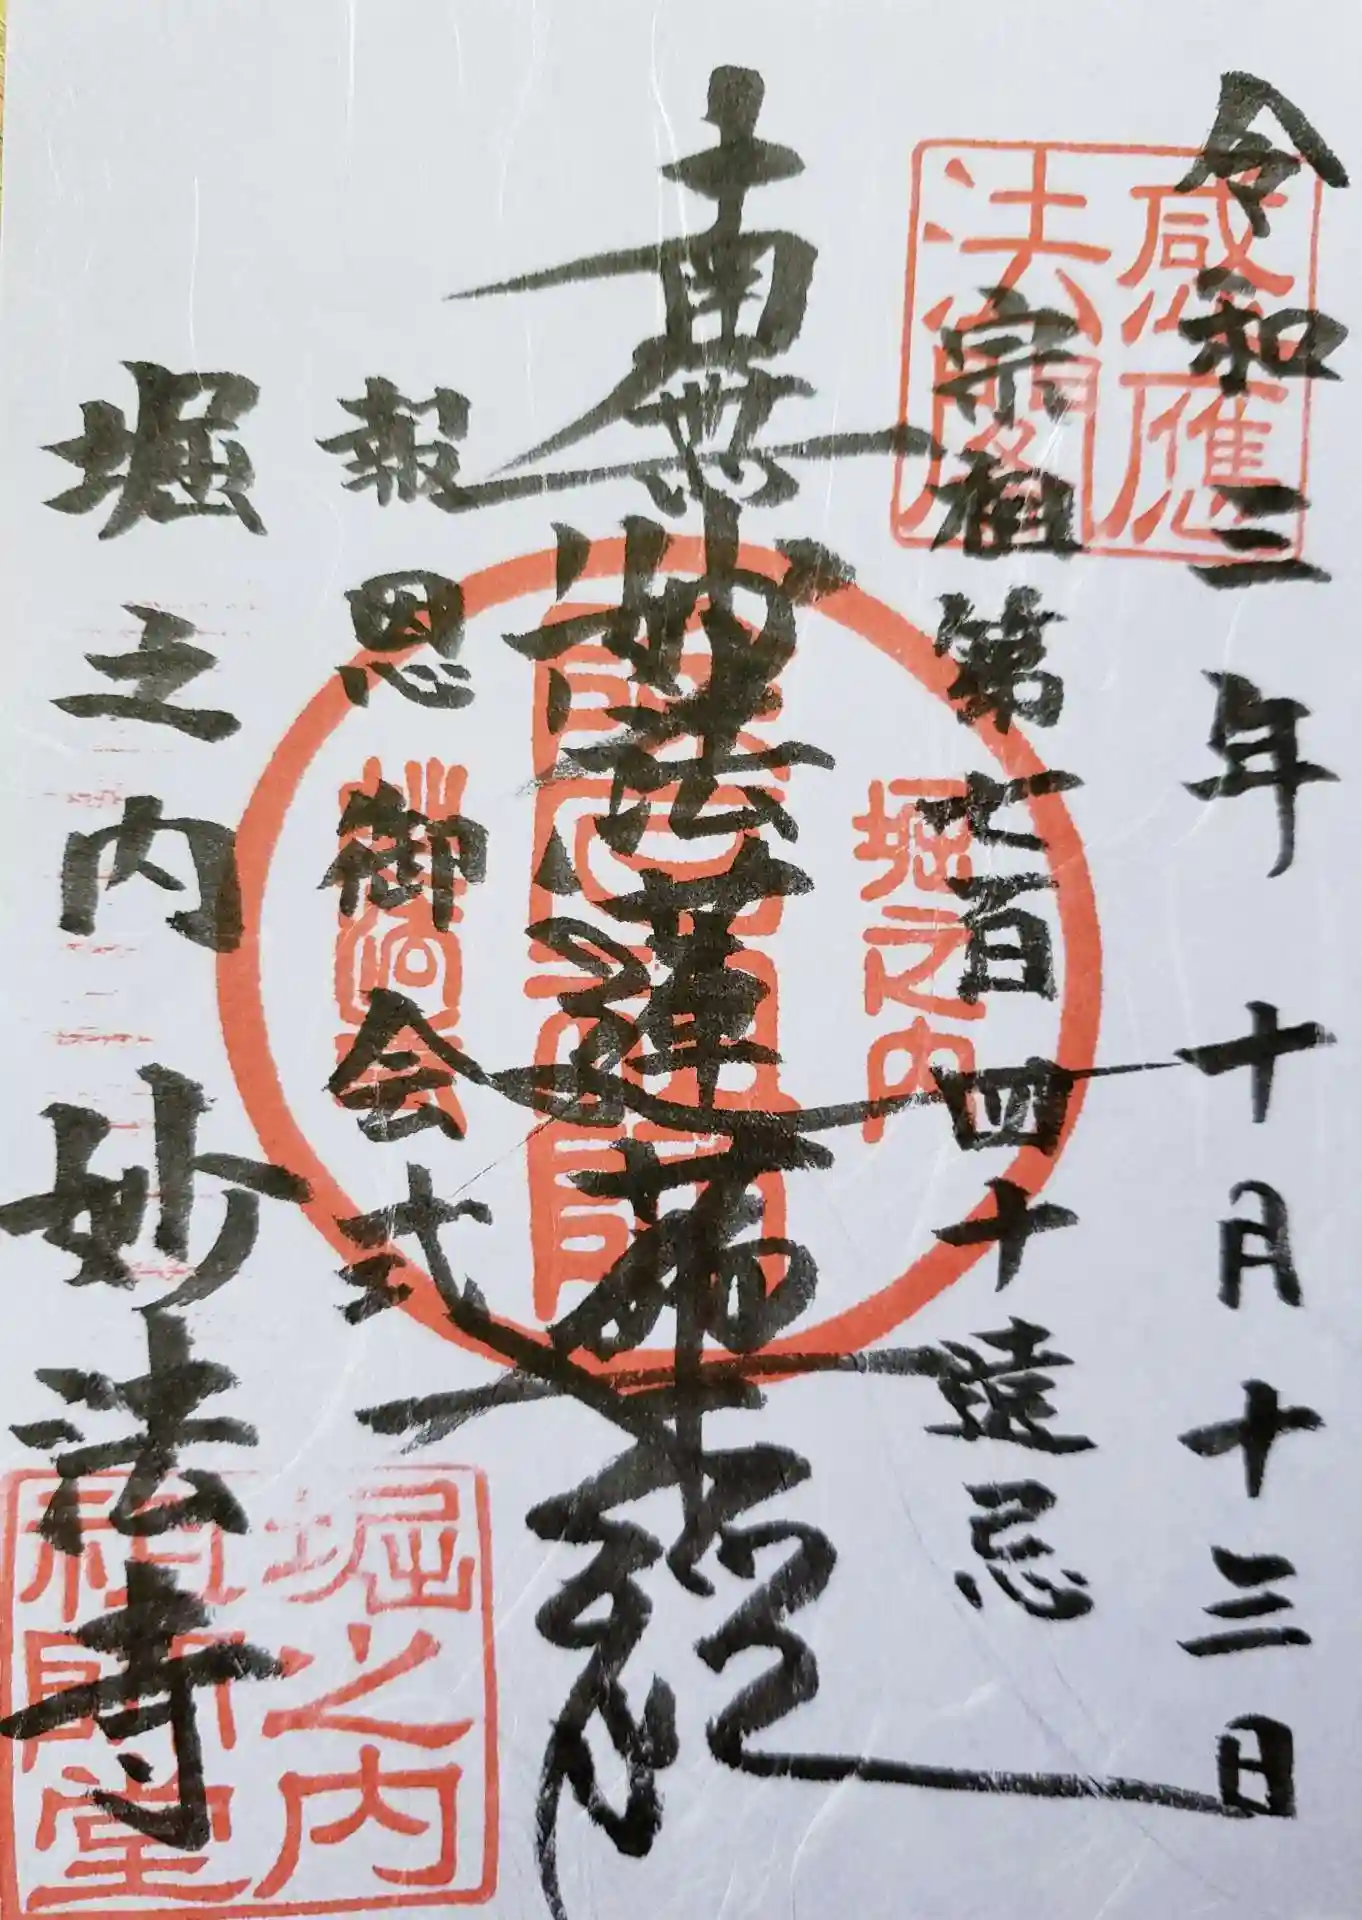 令和三年十月十三日
宗祖第七百四十遠忌
南無妙法蓮華経
報恩御会式
堀之内妙法寺
感應
法閣
堀之内
除厄祖師
堀之内
祖師堂